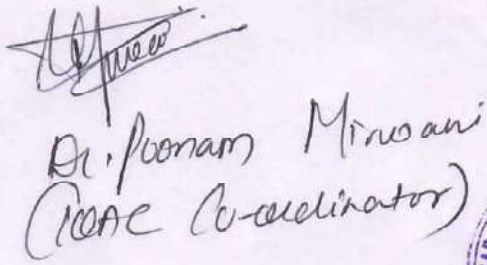 Dr. Poonam Mirwani
(IQAC Co-ordinator)